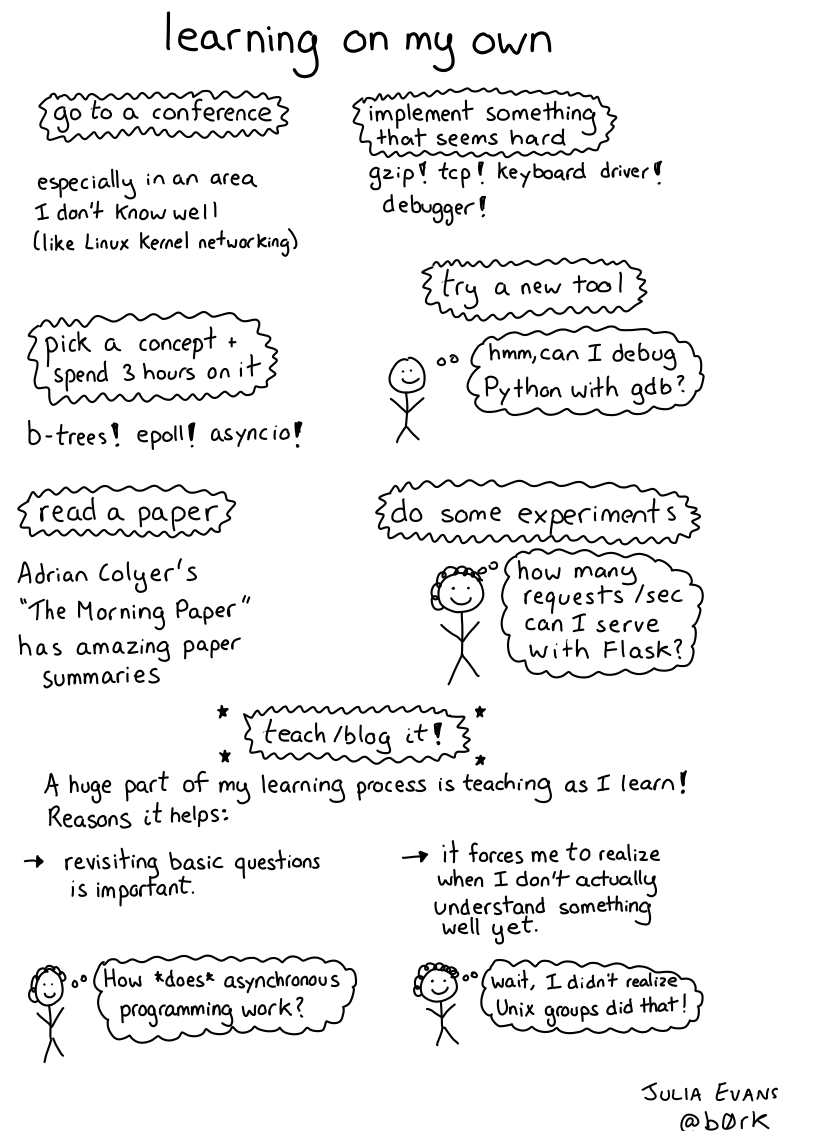 learning on my own
go to a conference
especially in an area
I don't know well
(like Linux kernel networking)
implement something
that seems hard
gzip! tcp! keyboard driver!
debugger!
try a new tool
hmm, can I debug
Python with gdb?
pick a concept +
spend 3 hours on it
b-trees! epoll! asyncio!
read a paper
Adrian Colyer's
"The Morning Paper"
has amazing paper
summaries
do some experiments
how many
requests/sec
can I serve
with Flask?
teach/blog it!
A huge part of my learning process is teaching as I learn!
Reasons it helps:
→ revisiting basic questions
is important.
How *does* asynchronous
programming work?
→ it forces me to realize
when I don't actually
understand something
well yet.
wait, I didn't realize
Unix groups did that!
JULIA EVANS
@b0rk